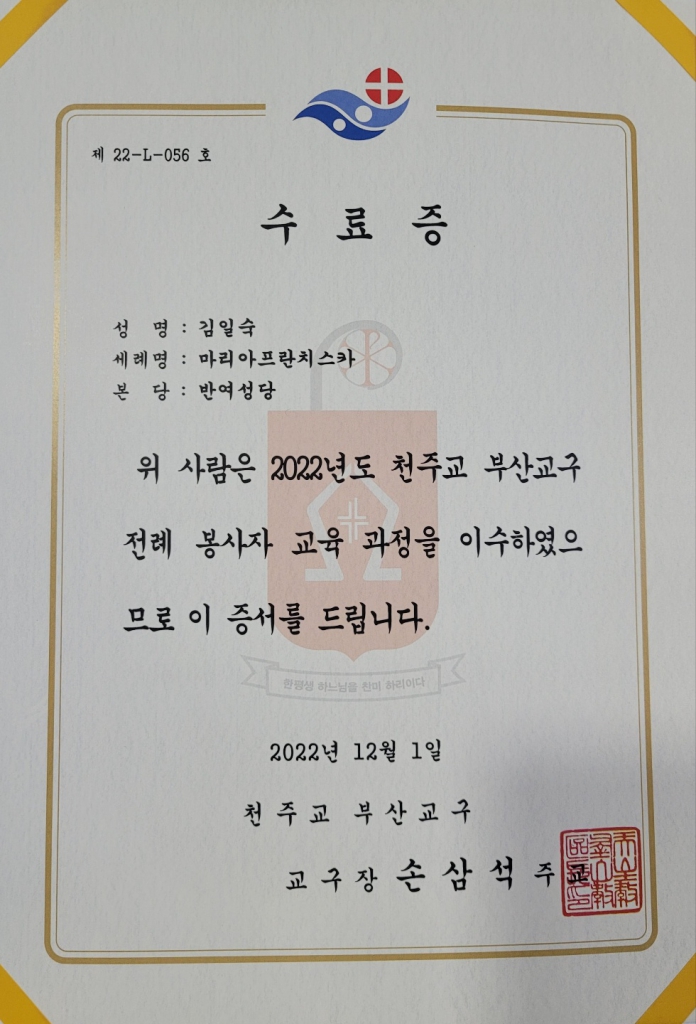 제 22-L-056 호
수 료 증
성 명 : 김일숙
세례명 : 마리아프란치스카
본 당 : 반여성당
위 사람은 2022년도 천주교 부산교구
전례 봉사자 교육 과정을 이수하였으
므로 이 증서를 드립니다.
한평생 하느님을 찬미 하리이다
2022년 12월 1일
천 주 교 부 산 교 구
교 구 장 손 삼 석 주 교